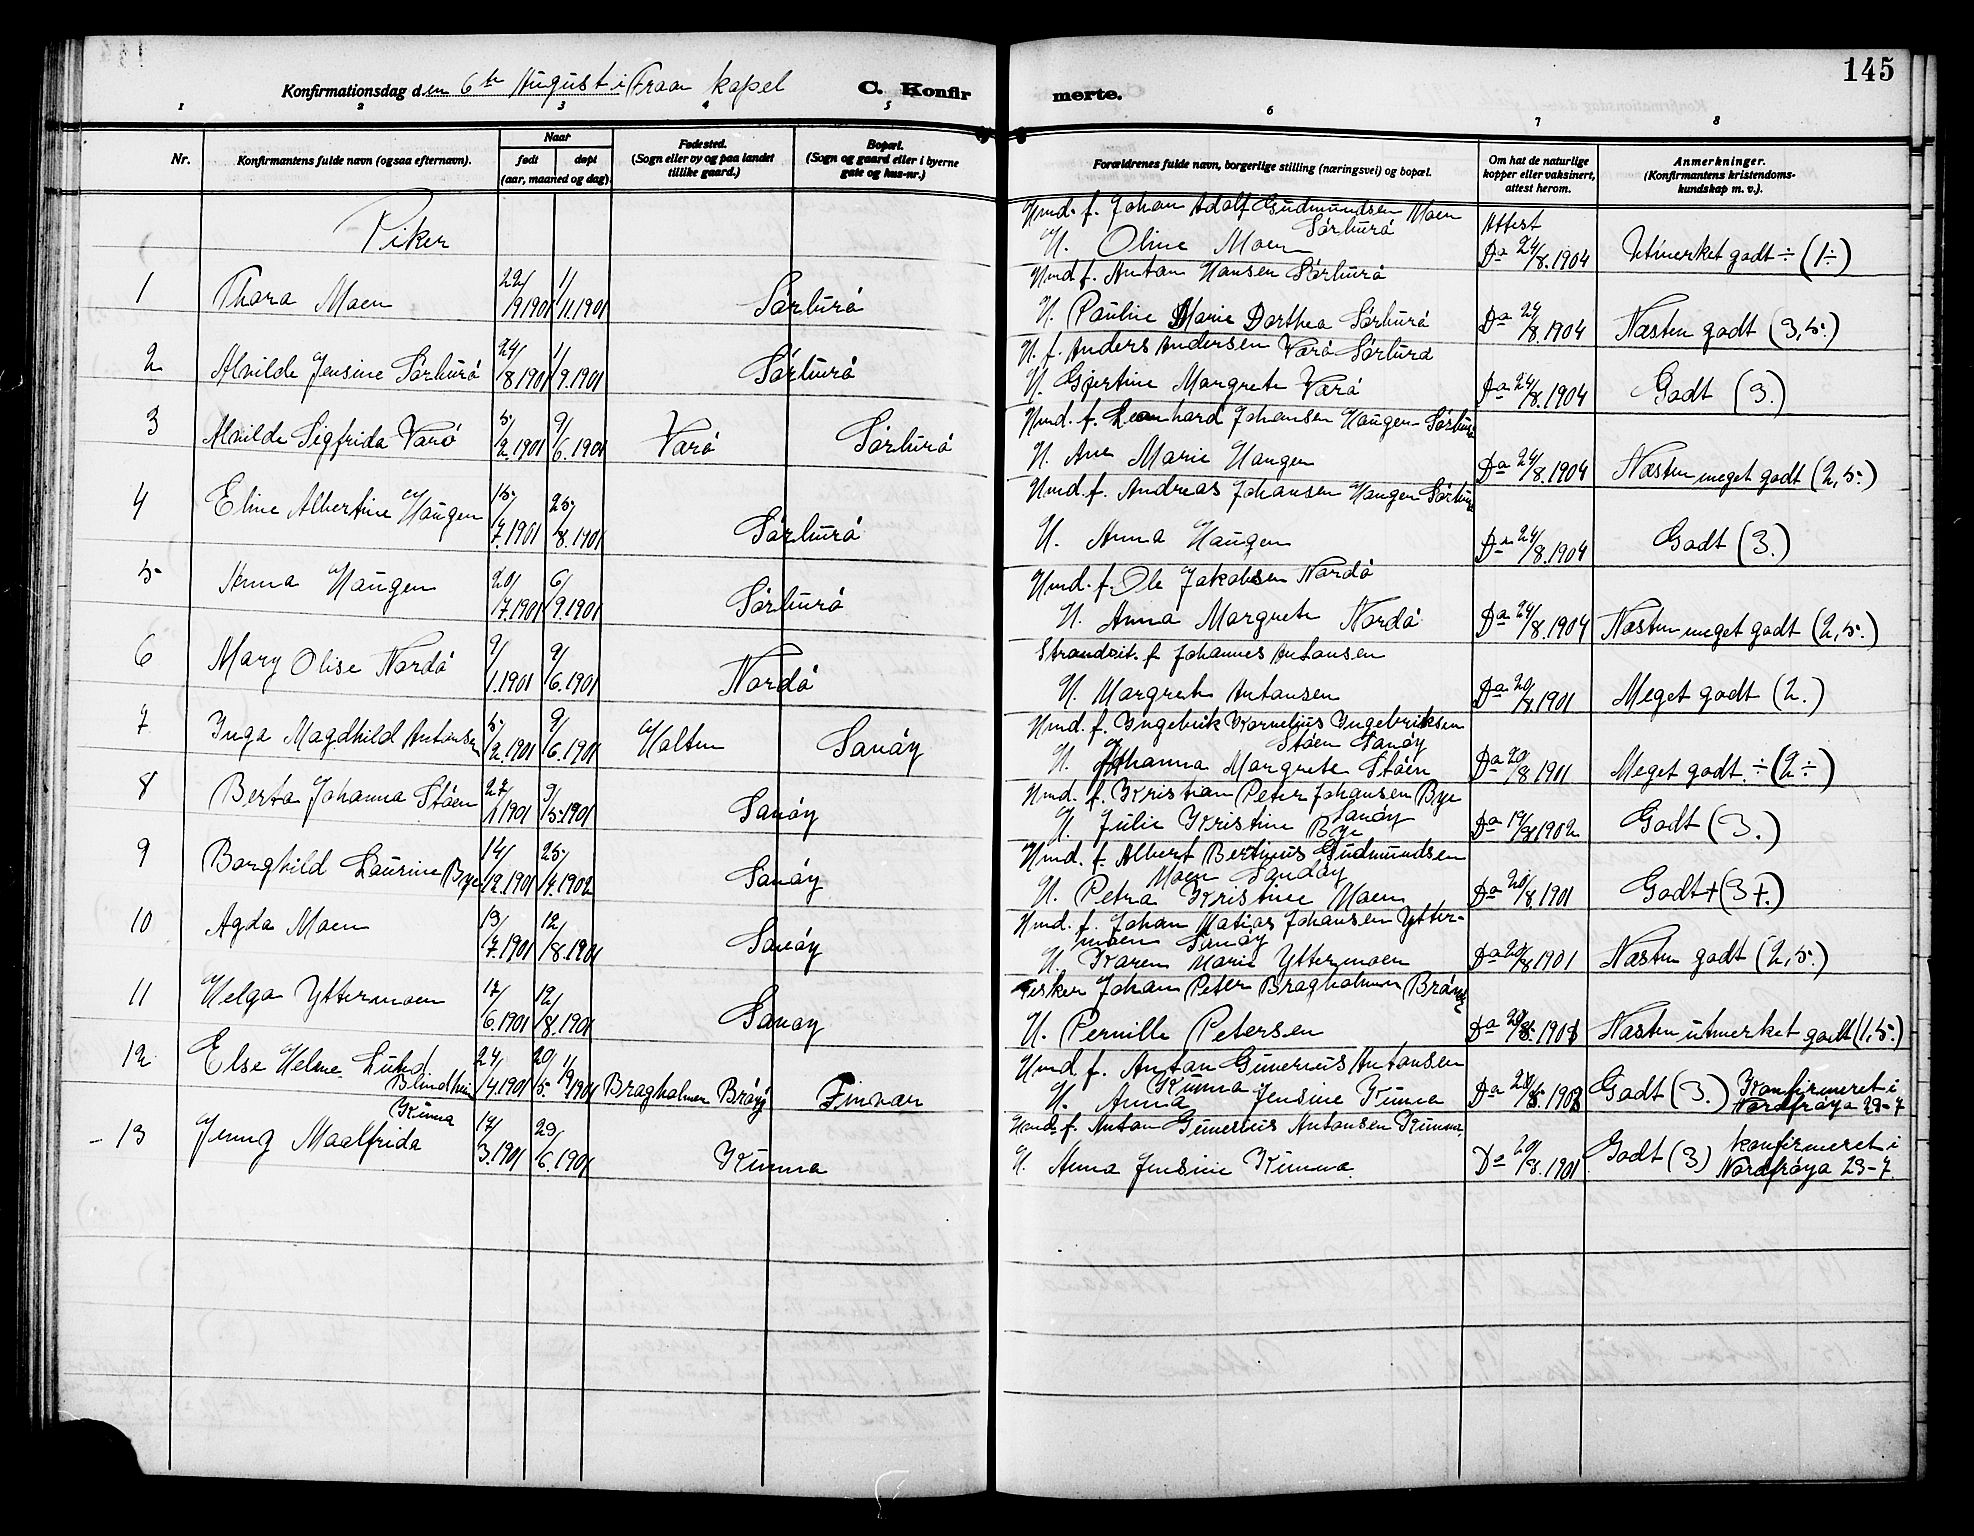 145
Konfirmationsdag den 6te August i Fraan kapel
C. Konfirmerte.
1 2 3 4 5 6 7 8
Nr.
Konfirmantens fulde navn (ogsaa efternavn).
Naar
født
døpt
(aar, maaned og dag).
Fødested.
(Sogn eller by og paa landet
tillike gaard.)
Bopæl.
(Sogn og gaard eller i byerne
gate og hus-nr.)
Forældrenes fulde navn, borgerlige stilling (næringsvei) og bopæl.
Om hat de naturlige
kopper eller vaksinert,
attest herom.
Anmerkninger.
(Konfirmantens kristendoms-
kundskap m. v.).
Piker
1 Thora Moen 22/9 1901 1/11.1901 Sørburø
Gmd. f. Johan Adolf Gudmundsen Moen
Sørburø
H. Oline Moen
Attest
Do 24/8.1904 Utmerket godt ÷ (1÷)
2 Alvilde Jensine Sørburø 24/8 1901 1/9.1901 Sørburø
Gmd f. Anton Hansen Sørburø
H. Pauline Marie Dorthea Sørburø
Do 24/8.1904 Næsten godt (3,5.)
3 Alvilde Sigfrida Varø 5/2.1901 9/6.1901 Varø Sørburø
H. f. Anders Andersen Varø Sørburø
H. Gjertine Margrete Varø
Do 24/8.1904 Godt (3.)
4 Eline Albertine Haugen 15/7.1901 25/8.1901 Sørburø
Gmd. f. Leonhard Johansen Haugen Sørburø
H. Ane Marie Haugen
Do 24/8.1904 Næsten meget godt (2,5.)
5 Anna Haugen 20/7.1901 6/9.1901 Sørburø
Gmd. f. Andreas Johansen Haugen Sørburø
H. Anna Haugen
Do 24/8.1904 Godt (3.)
6 Mary Olise Nordø 9/1.1901 9/6.1901 Nordø
Gmd. f. Ole Jakobsen Nordø
H. Anna Margrete Nordø
Do 24/8.1904 Næsten meget godt (2,5.)
7 Inga Magdhild Antonsen 5/2.1901 9/6.1901 Holten Sanøy
Strandsit. f. Johannes Antonsen
H. Margrete Antonsen
Do 20/8.1901 Meget godt (2.)
8 Berta Johanna Støen 27/1 1901 9/5.1901 Sanøy
Gmd. f. Ingebrik Kornelius Ingebriksen
Støen Sanøy
H. Johanna Margrete Støen
Do 20/8.1911 Meget godt ÷ (2÷)
9 Borghild Laurine Bye 14/12.1901 25/4.1902 Sanøy
Gmd. f. Kristian Peter Johansen Bye
Sanøy
H. Julie Kristine Bye
Do 19/8.1902 Godt (3.)
10 Agda Moen 13/7.1901 12/8.1901 Sanøy
Gmd. f. Albert Bertinus Gudmundsen
Moen Sandøy
H. Petra Kristine Moen
Do 20/8.1901 Godt + (3+.)
11 Helga Yttermoen 17/6.1901 12/8.1901 Sanøy
Gmd. f. Johan Matias Johansen Ytter-
moen Sanøy
H. Karen Marie Yttermoen
Do 20/8.1901 Næsten godt (2,5.)
12 Else Helene Lund.
Blindheim 24/4.1901 Bragholmen Brøøy Finvær
Fisker Johan Peter Bragholmen
H. Pernille Petersen
Næsten utmerket godt (1,5.)
- 13 Jenny Maalfrida
Kunna 17/3.1901 29/6.1901 Kunna
Gmd. f. Anton Gunerius Antonsen
Kunna
H. Anna Jensine Kunna
Godt (3.) Konfirmeret i
Nordfrøya 29-7
Gmd. f. Anton Gunerius Antonsen Kunna.
H. Anna Jensine Kunna.
Do 20/8.1901 Godt (3) konfirmeret i
Nordfrøya 29-7.